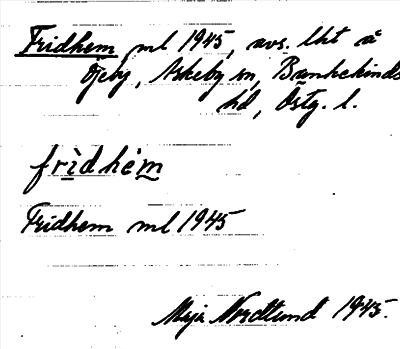 Fridhem ml 1945, avs. lht å
Öjeby, Askeby sn, Bankekinds
hd, Östg. l.
frìdhèm
Fridhem ml 1945
Maja Nordlund 1945.